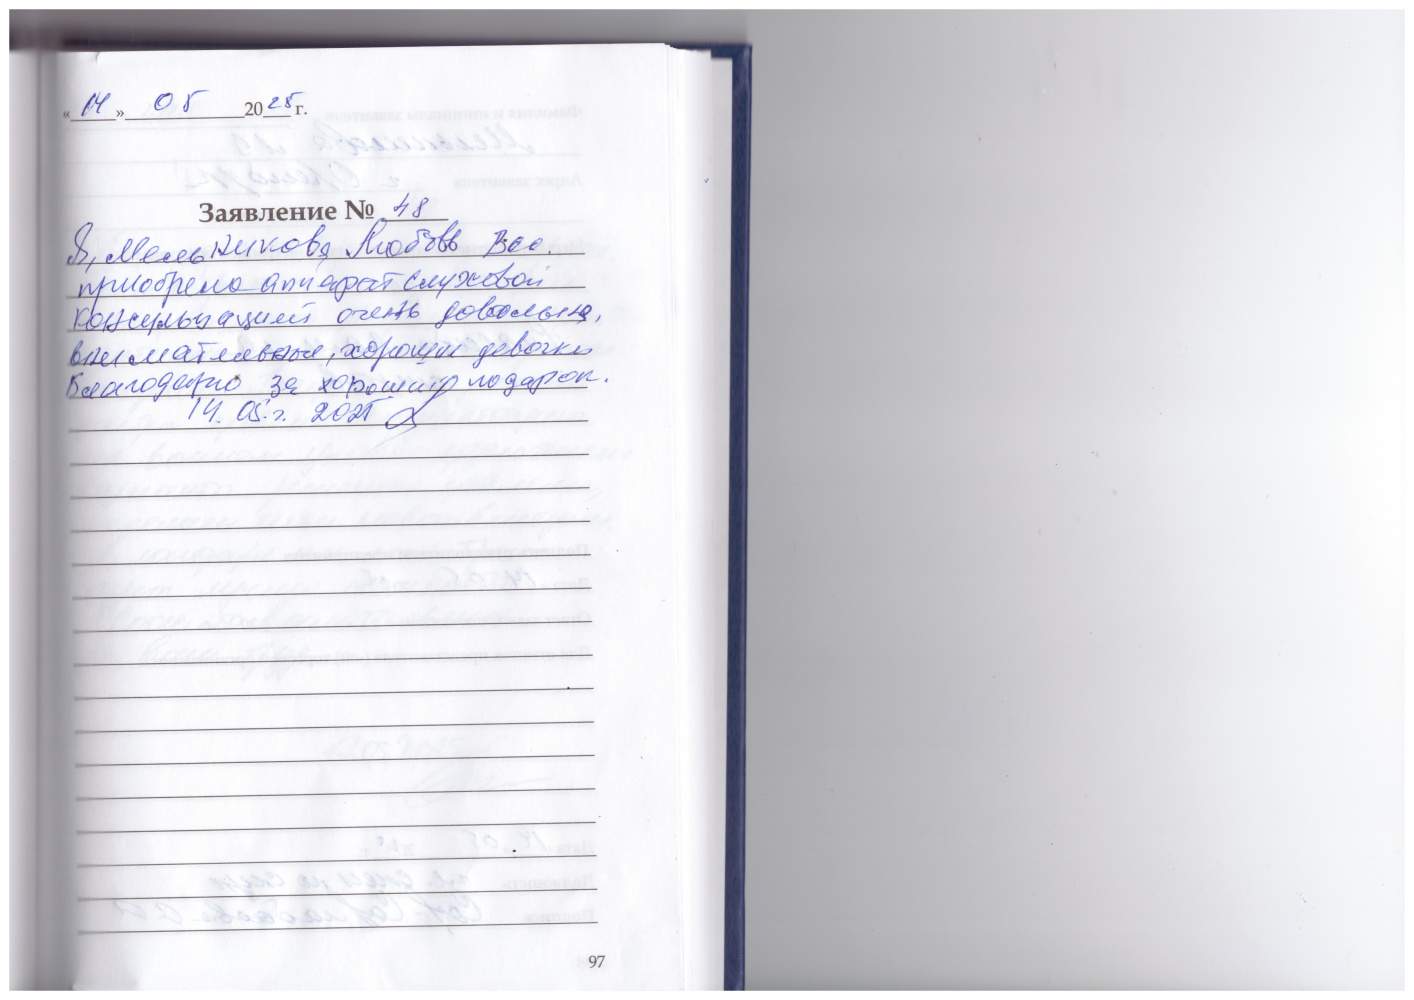 «14» 05 2025 г.
Заявление № 48
Я, Мельникова Любовь Вас.
приобрела аппарат слуховой
консультацией очень довольна,
внимательные, хорошие девочки
Благодарю за хороший подарок.
14. 05. г. 2025
97